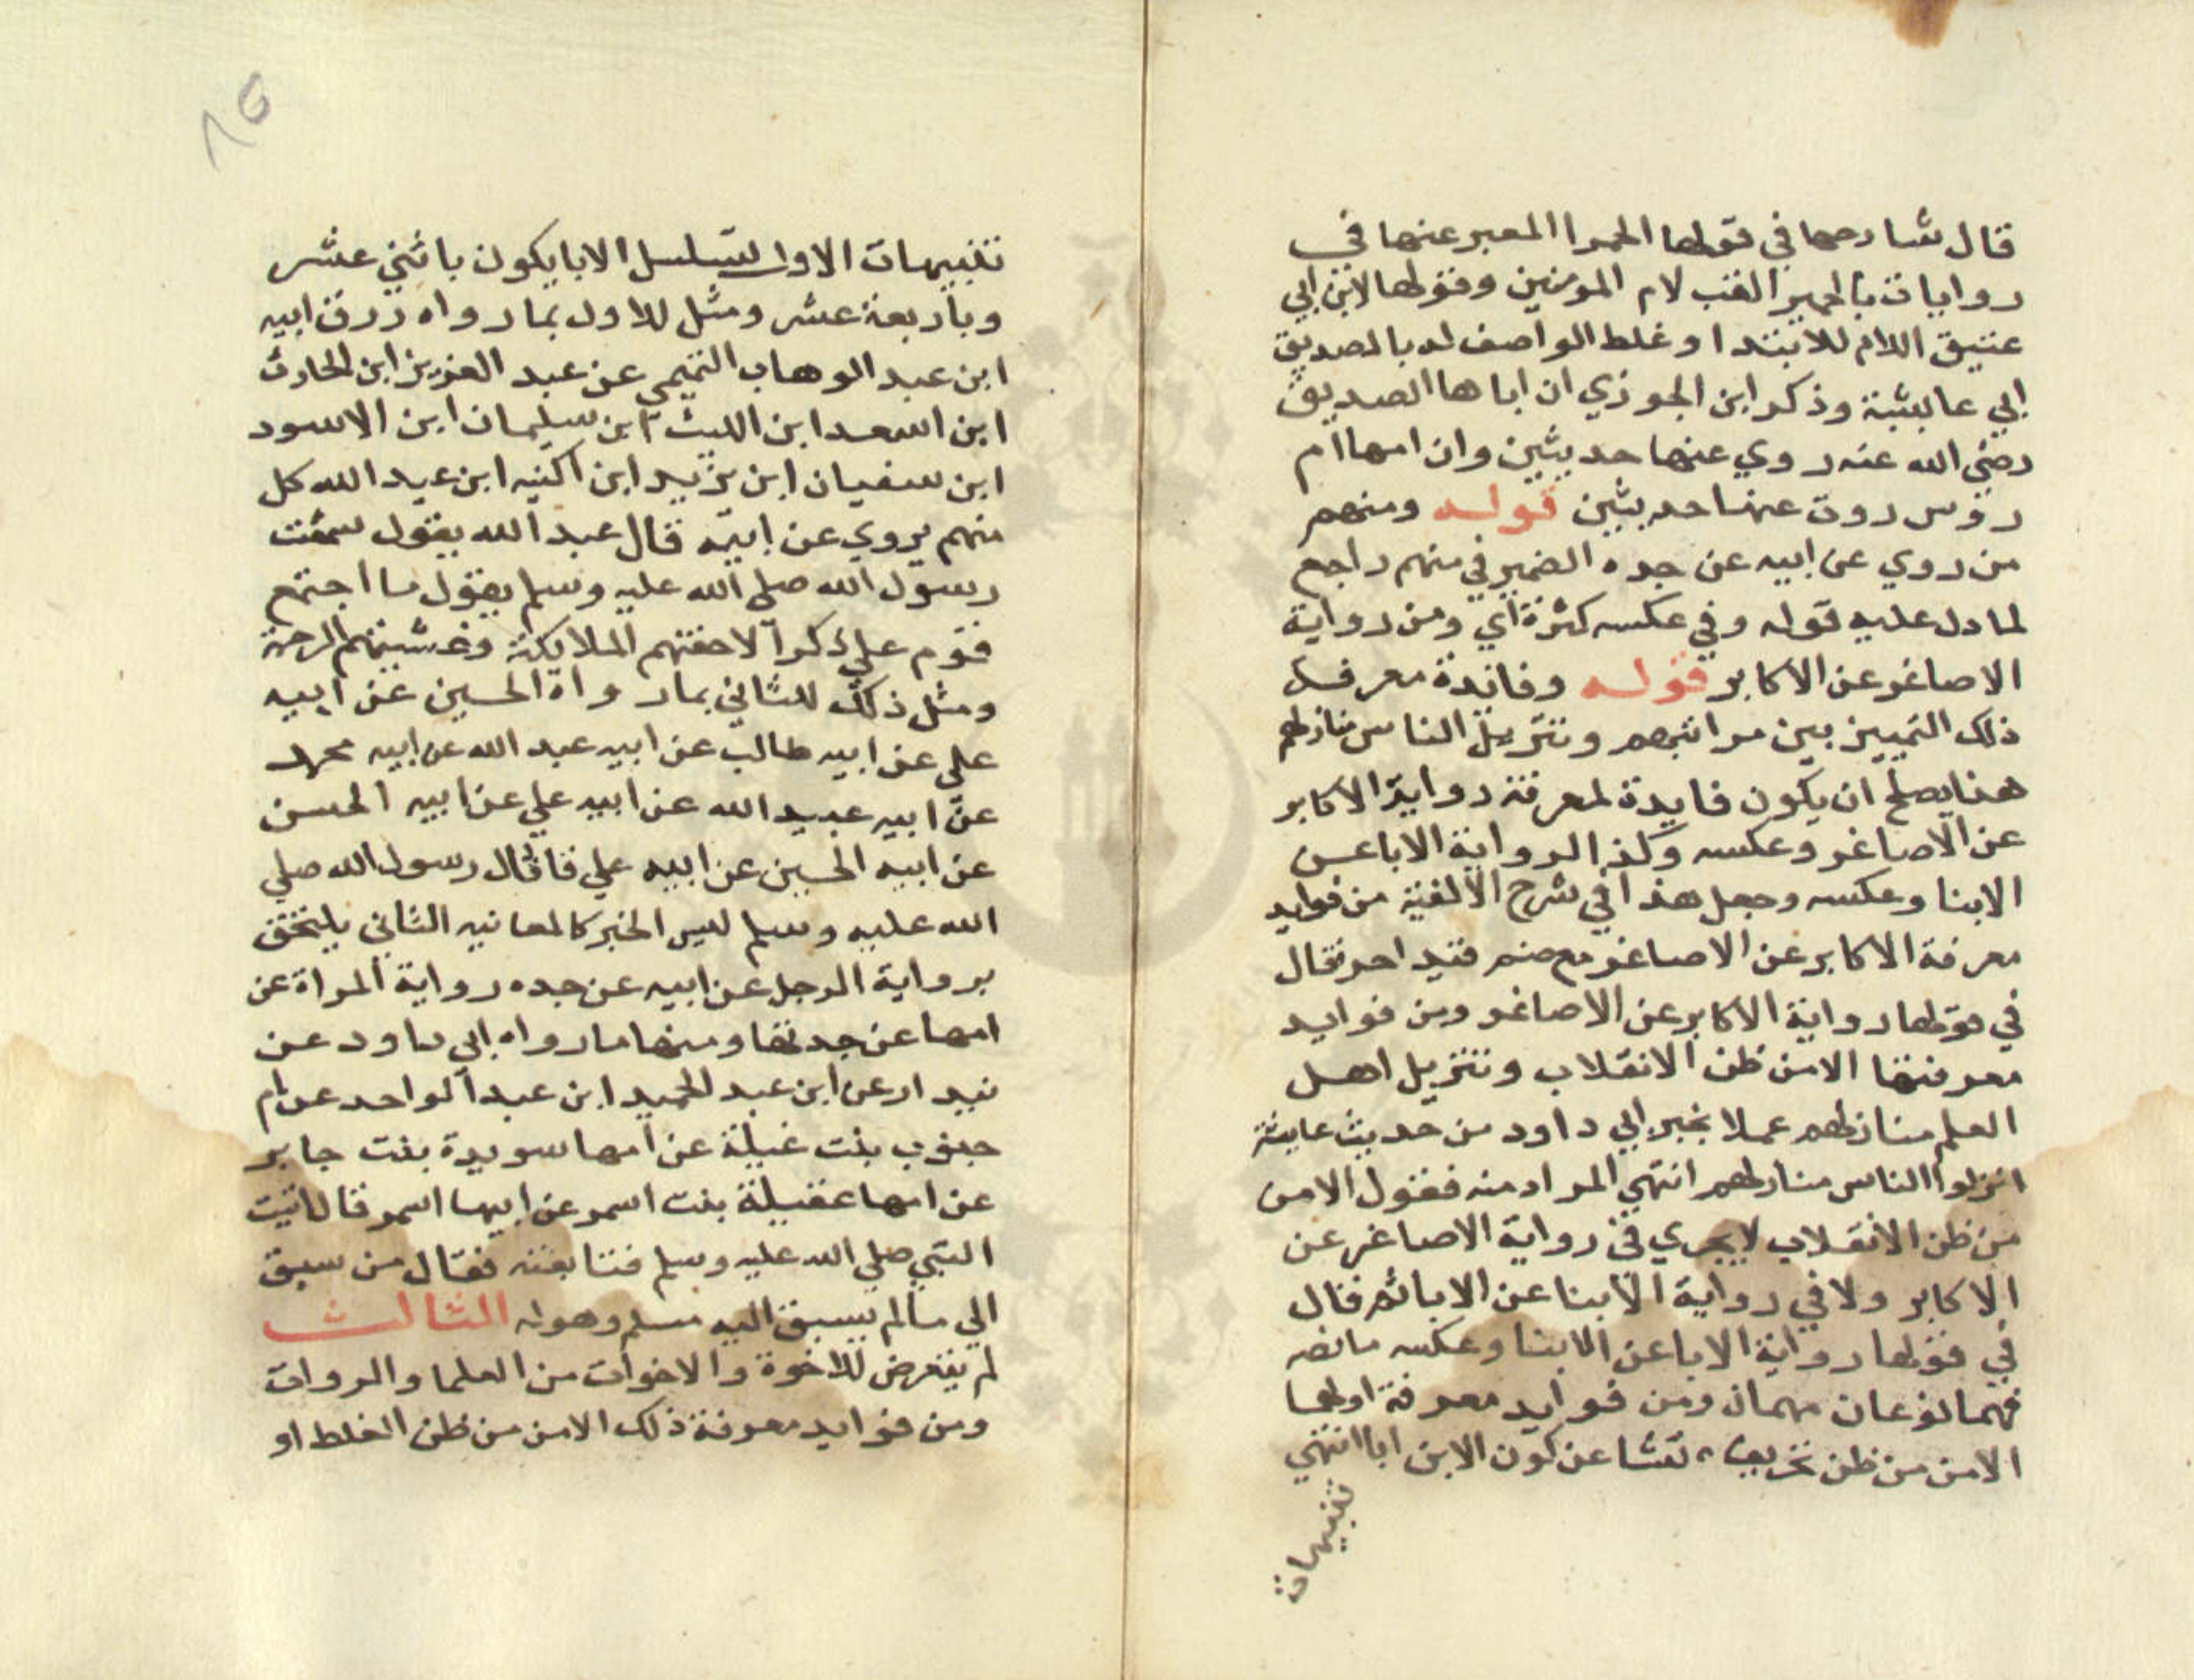 قال شارحها في قولها الحمرا المعبر عنها في
روايات بالحميرا لقب لام المومنين وقولها لابن ابي
عتيق اللام للابتدا وغلط الواصف له بالصديق
ابي عايشة وذكر ابن الجوزي ان اباها الصديق
رضي الله عنه روي عنها حديثين وان امها ام
رومن روت عنها حديثين قوله ومنهم
من روي عن ابيه عن جده الضمير في منهم راجع
لما دل عليه قوله وفي عكسه كثرة اي ومن رواية
الاصاغر عن الاكابر قوله وفائدة معرفة
ذلك التمييز بين مراتبهم وتنزيل الناس منازلهم
هذا يصلح ان يكون فايدة لمعرفة رواية الاكابر
عن الاصاغر وعكسه وكذا لرواية الابا عن
الابنا وعكسه وجعل هذا في شرح الالفية من فوايد
معرفة الاكابر عن الاصاغر مع ضم قيد اخر فقال
في قولها رواية الاكابر عن الاصاغر ومن فوايد
معرفتها الامن ظن الانقلاب وتنزيل اهل
العلم منازلهم عملا بخبر ابي داود من حديث عايشة
انزلوا الناس منازلهم انتهي المراد منه فقول الامن
من ظن الانقلاب لا يجري في رواية الاصاغر عن
الاكابر ولا في رواية الابنا عن الابا ثم قال
في قولها رواية الابا عن الابنا وعكسه ما نصه
فهما نوعان مهمان ومن فوايد معرفة اولها
الامن من ظن تحريف نشا عن كون الابن ابا انتهي
تنبيهات
٨٥
تنبيهات الاول تسلسل الابا يكون باثني عشر
وباربعة عشر ومثل للاول بما رواه رزق ابيه
ابن عبد الوهاب التميمي عن عبد العزيز ابن الحارث
ابن اسعد ابن الليث ابن سليمان ابن الاسود
ابن سفيان ابن يزيد ابن اكنيه ابن عبد الله كل
منهم يروي عن ابيه قال عبد الله يقول سمعت
رسول الله صلي الله عليه وسلم يقول ما اجتمع
قوم علي ذكر الا حفتهم الملايكة وغشيتهم الرحمة
ومثل ذلك للثاني بما رواه الحسين عن ابيه
علي عن ابيه طالب عن ابيه عبد الله عن ابيه محمد
عن ابيه عبيد الله عن ابيه علي عن ابيه الحسن
عن ابيه الحسين عن ابيه علي قا قال رسول الله صلي
الله عليه وسلم ليس الخبر كالمعاينه الثاني يلتحق
برواية الرجل عن ابيه عن جده رواية المراة عن
امها عن جدتها ومنها ما رواه ابي داود عن
بندار عن ابن عبد الحميد ابن عبد الواحد عن ام
جنوب بنت غيلة عن امها سويدة بنت جابر
عن امها عقيلة بنت اسمر عن ابيها اسمر قال اتيت
النبي صلي الله عليه وسلم فتابعته فقال من سبق
الي ما لم يسبق اليه مسلم وهو له الثالث
لم يتعرض للاخوة والاخوات من العلما والروات
ومن فوايد معرفة ذلك الامن من ظن الغلط او